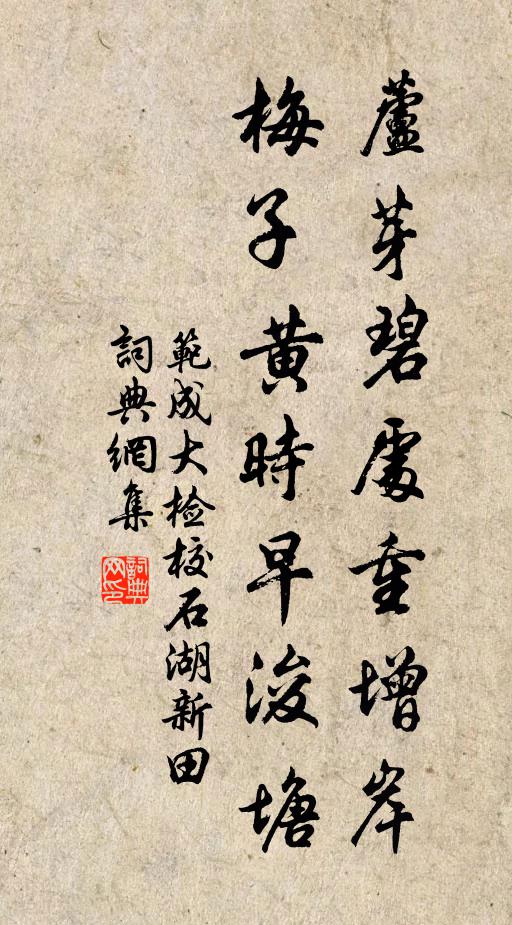 蘆芽碧處重增岸
梅子黃時早浚塘
範成大檢校石湖新田
詞典網集
詞典
网印